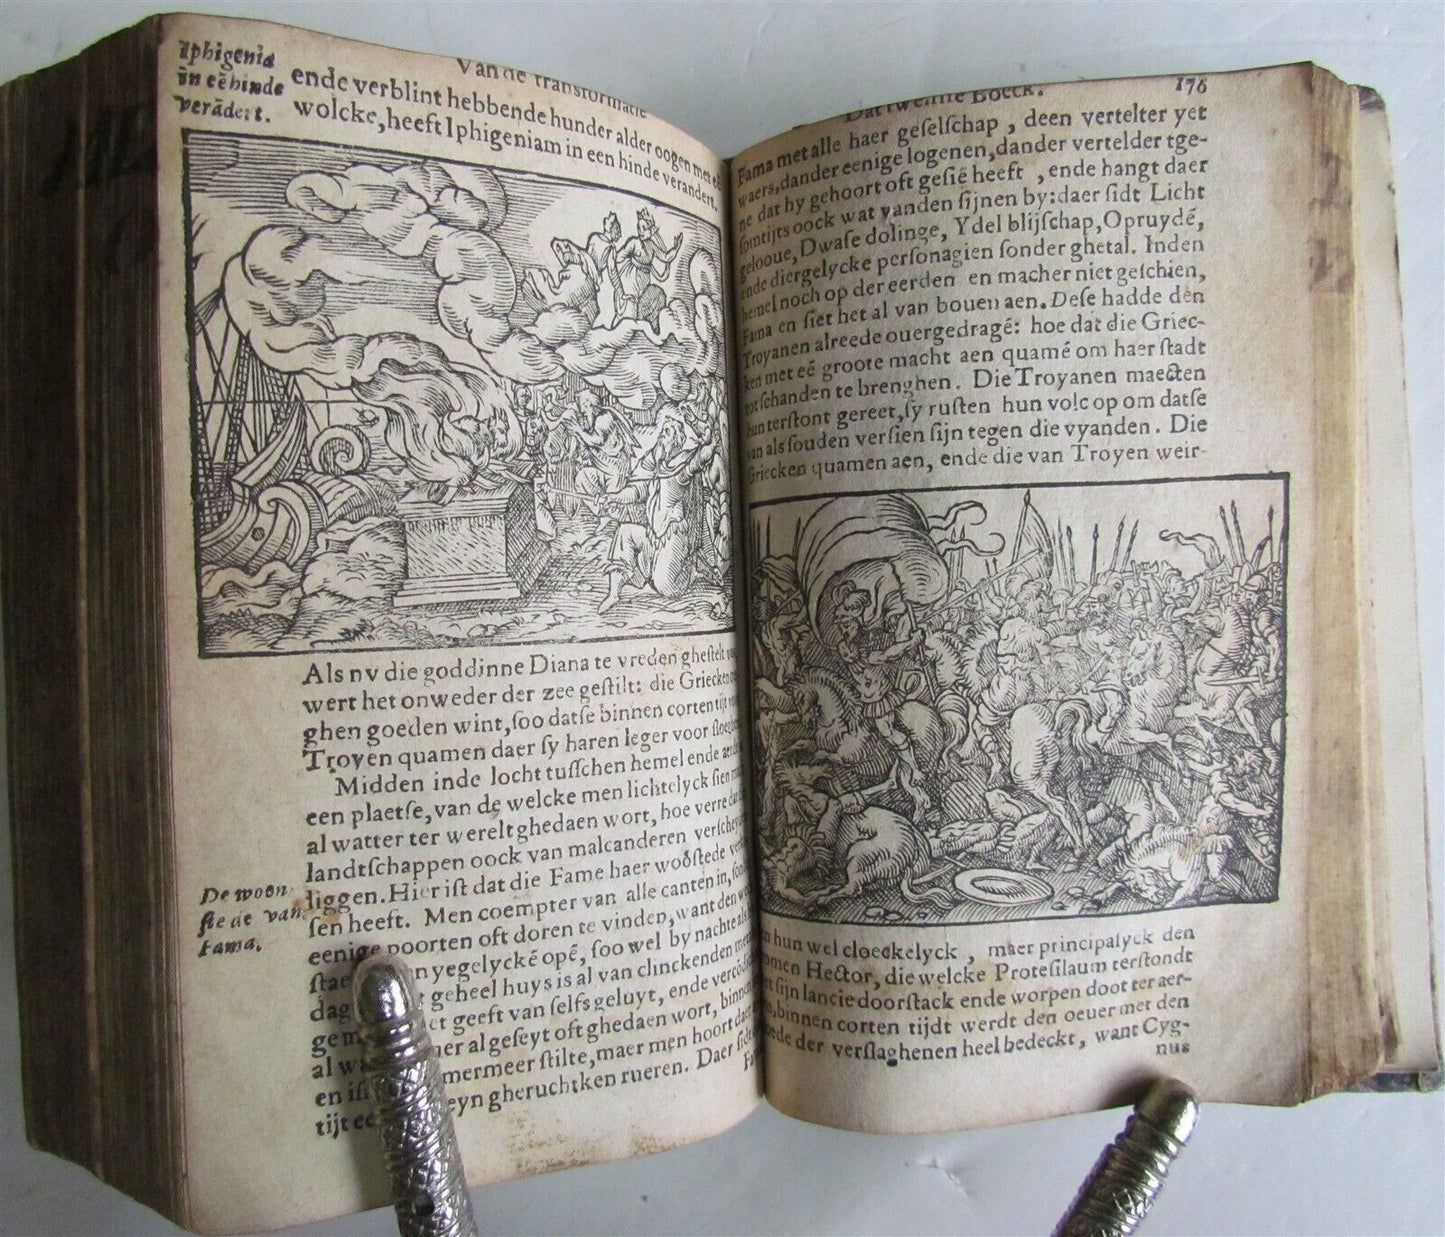 Van de transformatie
Iphigenia
in eē hinde
verādert.
ende verblint hebbende hunder alder oogen met
wolcke, heeft Iphigeniam in een hinde verandert.
Als nv die goddinne Diana te vreden gheſtelt
wert het onweder der zee geſtilt: die Griecken
ghen goeden wint, ſoo datſe binnen corten tijt
Troyen quamen daer ſy haren leger voor
Midden inde locht tuſſchen hemel ende
een plaetſe, van de welcke men lichtelyck ſien
al watter ter werelt ghedaen wort, hoe verre dat
landtſchappen oock van malcanderen
liggen. Hier iſt dat die Fame haer woōſtede
De woon
ſtede van
Fama.
ſen heeft. Men coempter van alle canten in,
eenige poorten oft doren te vinden, want den
yegelyckē opē, ſoo wel by nachte als
dag geheel huys is al van clinckenden
geeft van ſelfs geluyt, ende
al geſeyt oft ghedaen wort, binnen
al mermeer ſtilte, maer men hoort daer
en gheruchtken rueren. Daer ſidt
tijt
Dat twelfſte Boeck. 176
Fama met alle haer geſelſchap, deen vertelter yet
waers, dander eenige logenen, dander vertelder tge-
ne dat hy gehoort oft geſiē heeft, ende hangt daer
ſomtijts oock wat vanden ſijnen by: daer ſidt Licht
gelooue, Dwaſe dolinge, Ydel blijſchap, Opruydē,
ende diergelycke perſonagien ſonder ghetal. Inden
hemel noch op der eerden en macher niet geſchien,
Fama en ſiet het al van bouen aen. Deſe hadde dēn
Troyanen alreede ouergedragē: hoe dat die Griec-
ken met eē groote macht aen quamē om haer ſtadt
tot ſchanden te brenghen. Die Troyanen maecten
hun terſtont gereet, ſy ruſten hun volc op om datſe
van als ſouden verſien ſijn tegen die vyanden. Die
Griecken quamen aen, ende die van Troyen weir-
hun wel cloeckelyck, maer principalyck den
Hector, die welcke Proteſilaum terſtondt
ſijn lancie doorſtack ende worpen doot ter aer-
binnen corten tijdt werdt den oeuer met den
der verſlaghenen heel bedeckt, want Cyg-
nus